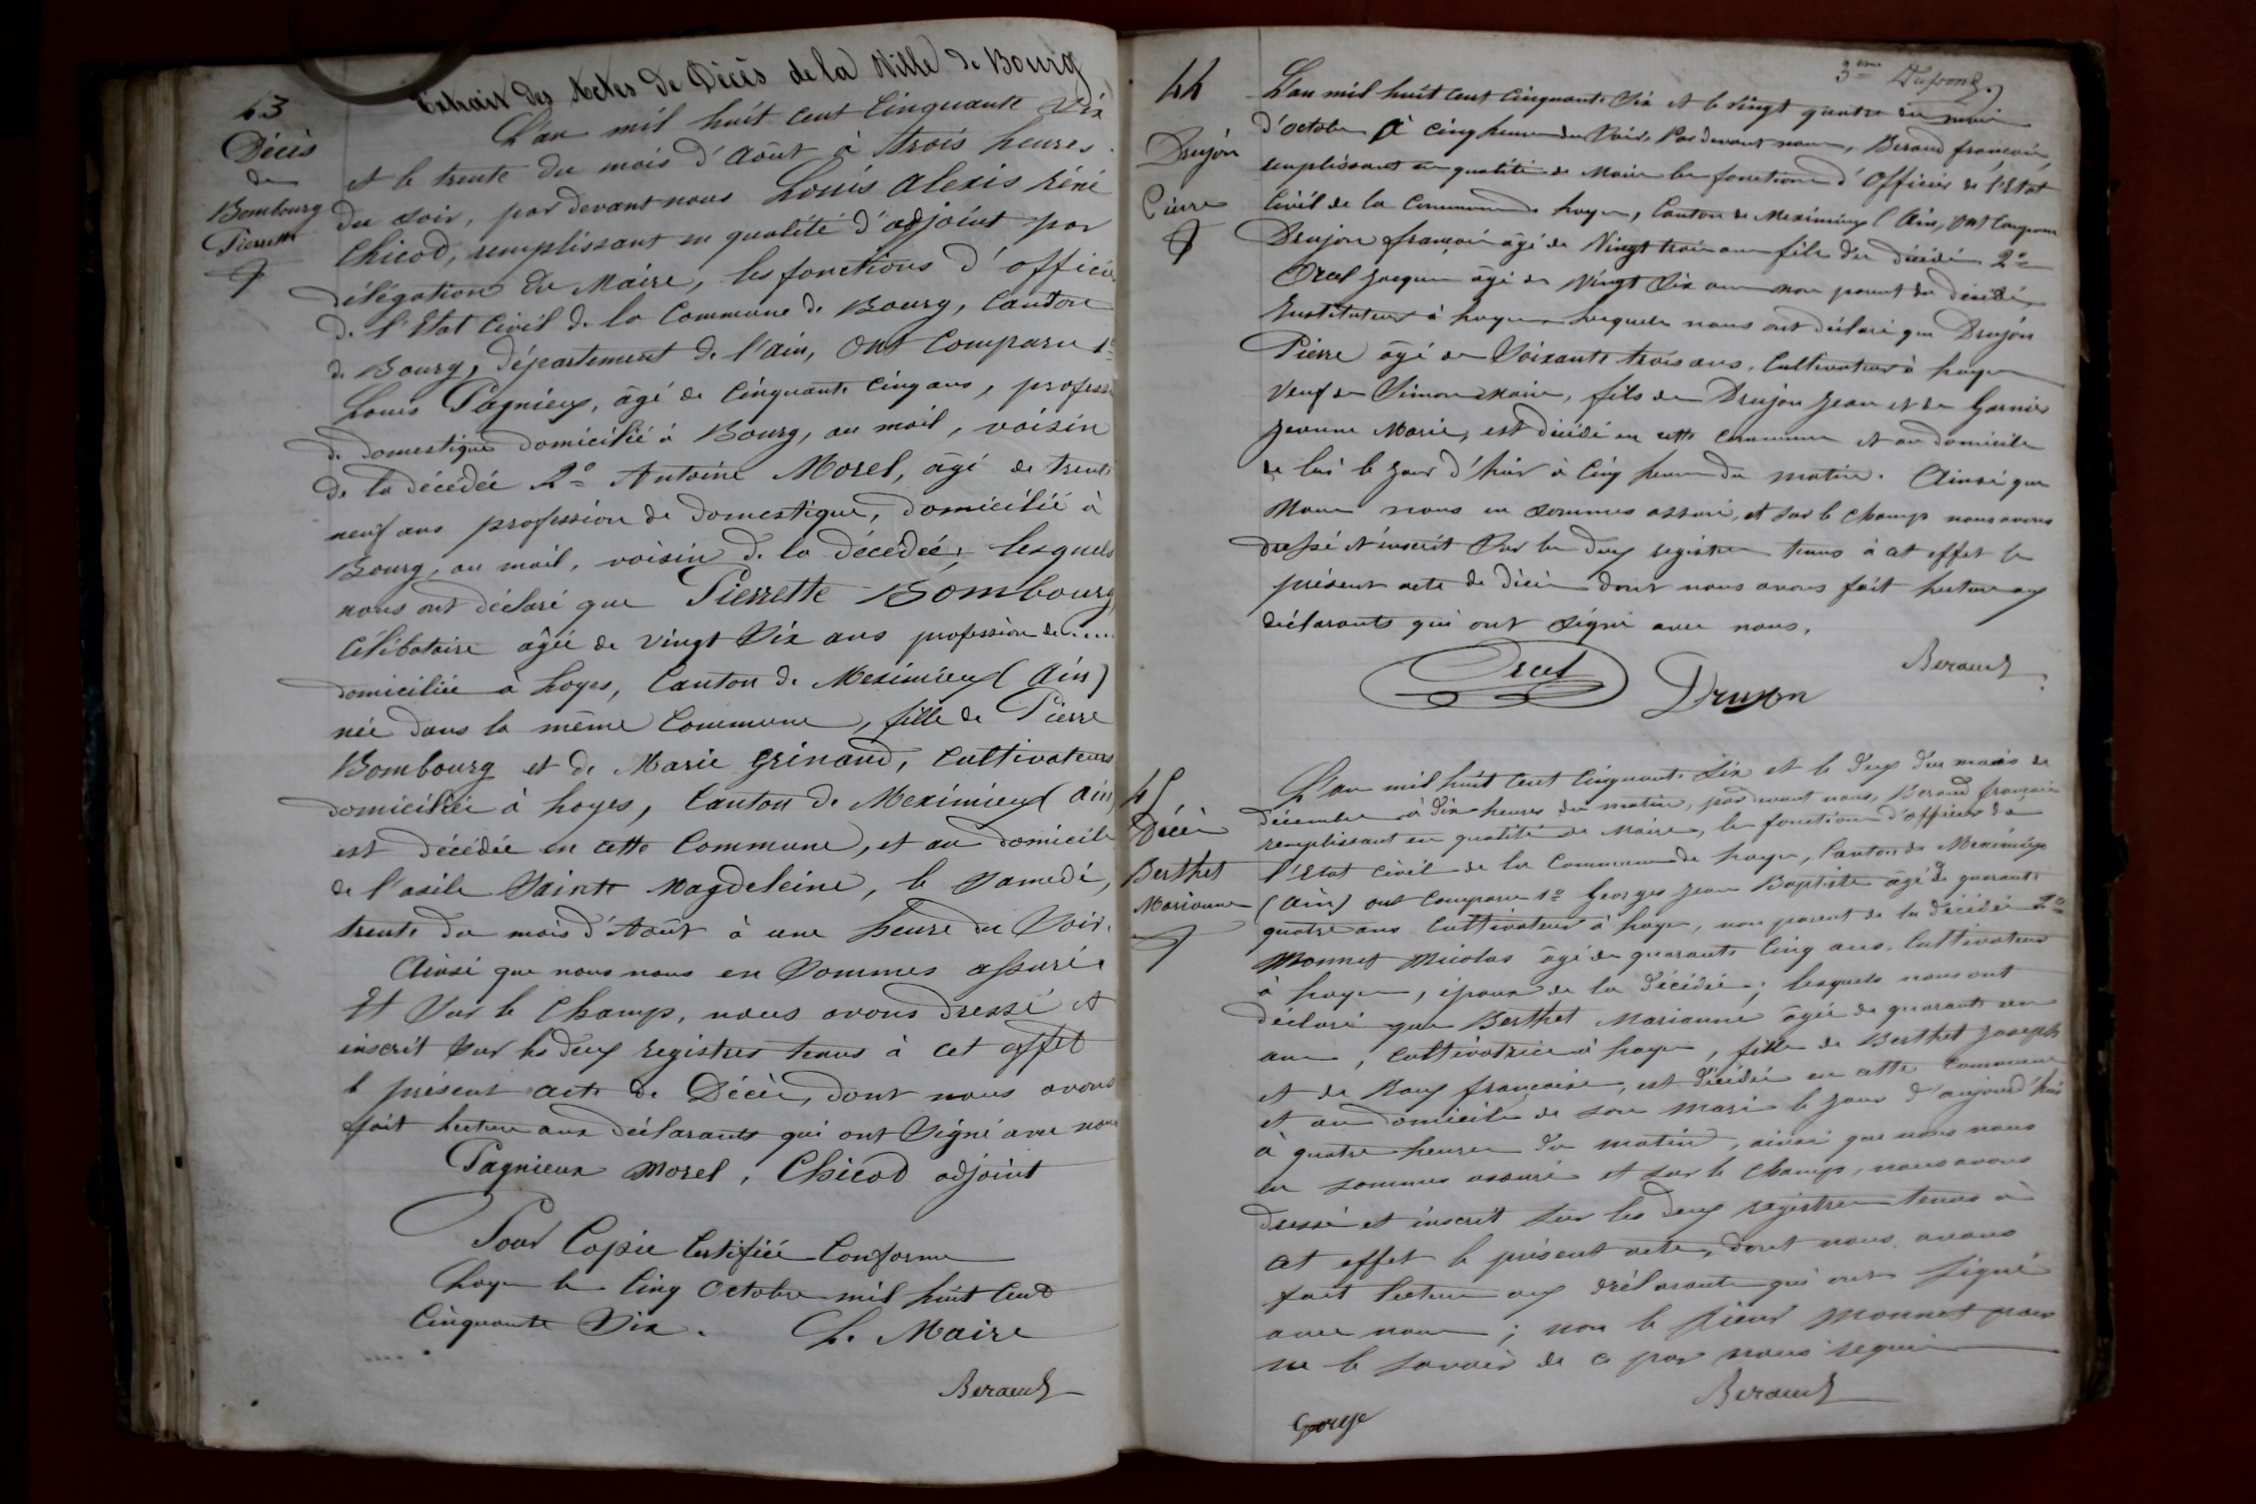 Extrait des Actes de Décès de la Ville de Bourg
43
Décès
de
Bombourg
Pierrette
L'an mil huit cent Cinquante Six
et le trente du mois d'Août à trois heures
du soir, par devant nous Louis Alexis Réné
Chicod, remplissant en qualité d'adjoint par
délégation du Maire, les fonctions d'officier
de l'Etat Civil de la Commune de Bourg, Canton
de Bourg, Département de l'ain, Ont Comparu 1º
Louis Pagnieux, âgé de Cinquante Cinq ans, profess
de domestique domicilié à Bourg, au mail, voisin
de la décédée 2º Antoine Morel, âgé de trente
neuf ans profession de domestique, domicilié à
Bourg, au mail, voisin de la décédée, lesquels
nous ont déclaré que Pierrette Bombourg
Célibataire âgée de vingt Six ans profession de ....
domiciliée à Loyes, Canton de Meximieux (Ain)
née dans la même Commune, fille de Pierre
Bombourg et de Marie Grinand, Cultivateurs
domiciliés à Loyes, Canton de Meximieux (ain)
est décédée en cette Commune, et au domicile
de l'asile Sainte Magdeleine, le Samedi,
trente du mois d'Août à une heure du Soir.
Ainsi que nous nous en Sommes assuré.
Et Sur le Champ, nous avons dressé et
inscrit Sur les deux registres tenus à cet effet
le présent acte de Décès, dont nous avons
fait lecture aux déclarants qui ont Signé avec nous
Pagnieux Morel, Chicod adjoint
Pour Copie Certifiée Conforme
Loyes le Cinq Octobre mil huit Cent
Cinquante Six. Le Maire
Beraud
3eme
44
Drujon
Pierre
L'an mil huit cent cinquante Six et le vingt quatre du mois
d'octobre à cinq heures du Soir, Par devant nous, Beraud françois,
remplissant en qualité de Maire les fonctions d'Officier de l'Etat
Civil de la Commune de Loyes, Canton de Meximieux (Ain, ont Comparu
Drujon françois âgé de Vingt trois ans fils du décédé 2º
Orcel Jacques âgé de Vingt Six ans non parent du décédé
Instituteur à Loyes lesquels nous ont déclaré que Drujon
Pierre âgé de Soixante trois ans, Cultivateur à Loyes
Veuf de Simon Marie, fils de Drujon Jean et de Garnier
Jeanne Marie, est décédé en cette Commune et au domicile
de lui le jour d'hier à Cinq heures du matin. Ainsi que
Nous nous en sommes assuré, et sur le champ nous avons
dressé et inscrit Sur les deux registres tenus à cet effet le
présent acte de décès dont nous avons fait lecture aux
déclarants qui ont Signé avec nous.
Orcel Drujon Beraud
45
Décès
Berthet
Marianne
L'an mil huit Cent Cinquante Six et le deux du mois de
décembre à dix heures du matin, par devant nous, Beraud françois
remplissant en qualité de Maire, les fonctions d'officier de
l'Etat Civil de la Commune de Loyes, Canton de Meximieux
(Ain) ont Comparu 1º Georges Jean Baptiste âgé de quarante
quatre ans Cultivateur à Loyes, non parent de la décédée 2º
Monnet Nicolas âgé de quarante Cinq ans, Cultivateur
à Loyes, époux de la décédée; lesquels nous ont
déclaré que Berthet Marianne âgée de quarante un
ans, cultivatrice à Loyes, fille de Berthet Joseph
et de Roux françoise, est décédée en cette Commune
et au domicile de son mari le jour d'aujourd'hui
à quatre heures du matin, ainsi que nous nous
en sommes assuré et sur le Champ, nous avons
dressé et inscrit sur les deux registres tenus à
cet effet le présent acte, dont nous avons
fait lecture aux déclarants qui ont signé
avec nous; non le sieur Monnet pour
ne le savoir de ce par nous requis
Beraud
George